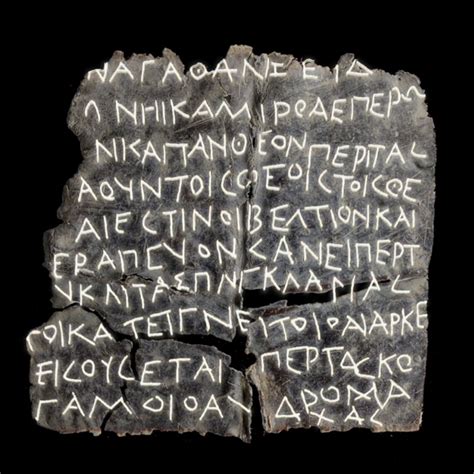 ΝΑΓΑΘΑΝΙΕΙΔ
ΝΗΙΚΑΜΙΡΟΔΕΠΕΡΩ
ΝΙΚΑΠΑΝΘΕΟΝΠΕΡΙΤΑΣ
ΑΘΥΝΤΟΙΣΘΕΟΙΣΤΟΙΣΘΕ
ΑΙΕΣΤΙΝΟΙΒΕΛΤΙΟΝΚΑΙ
ΕΡΑΠΕΥΟΝΣΑΝΕΙΠΕΡΤ
ΥΚΛΙΤΑΣΠΝΓΚΛΑΜΑΣ
ΓΟΙΚΑΤΕΙΓΝΕΙΤΟΙΟΑΙΑΡΚΕ
ΕΙΣΟΥΣΕΤΑΙ ΠΕΡΤΑΣΚΟ
ΓΑΜΟΙΟΑΥ ΔΡΟΜΑ
ΧΑΣ